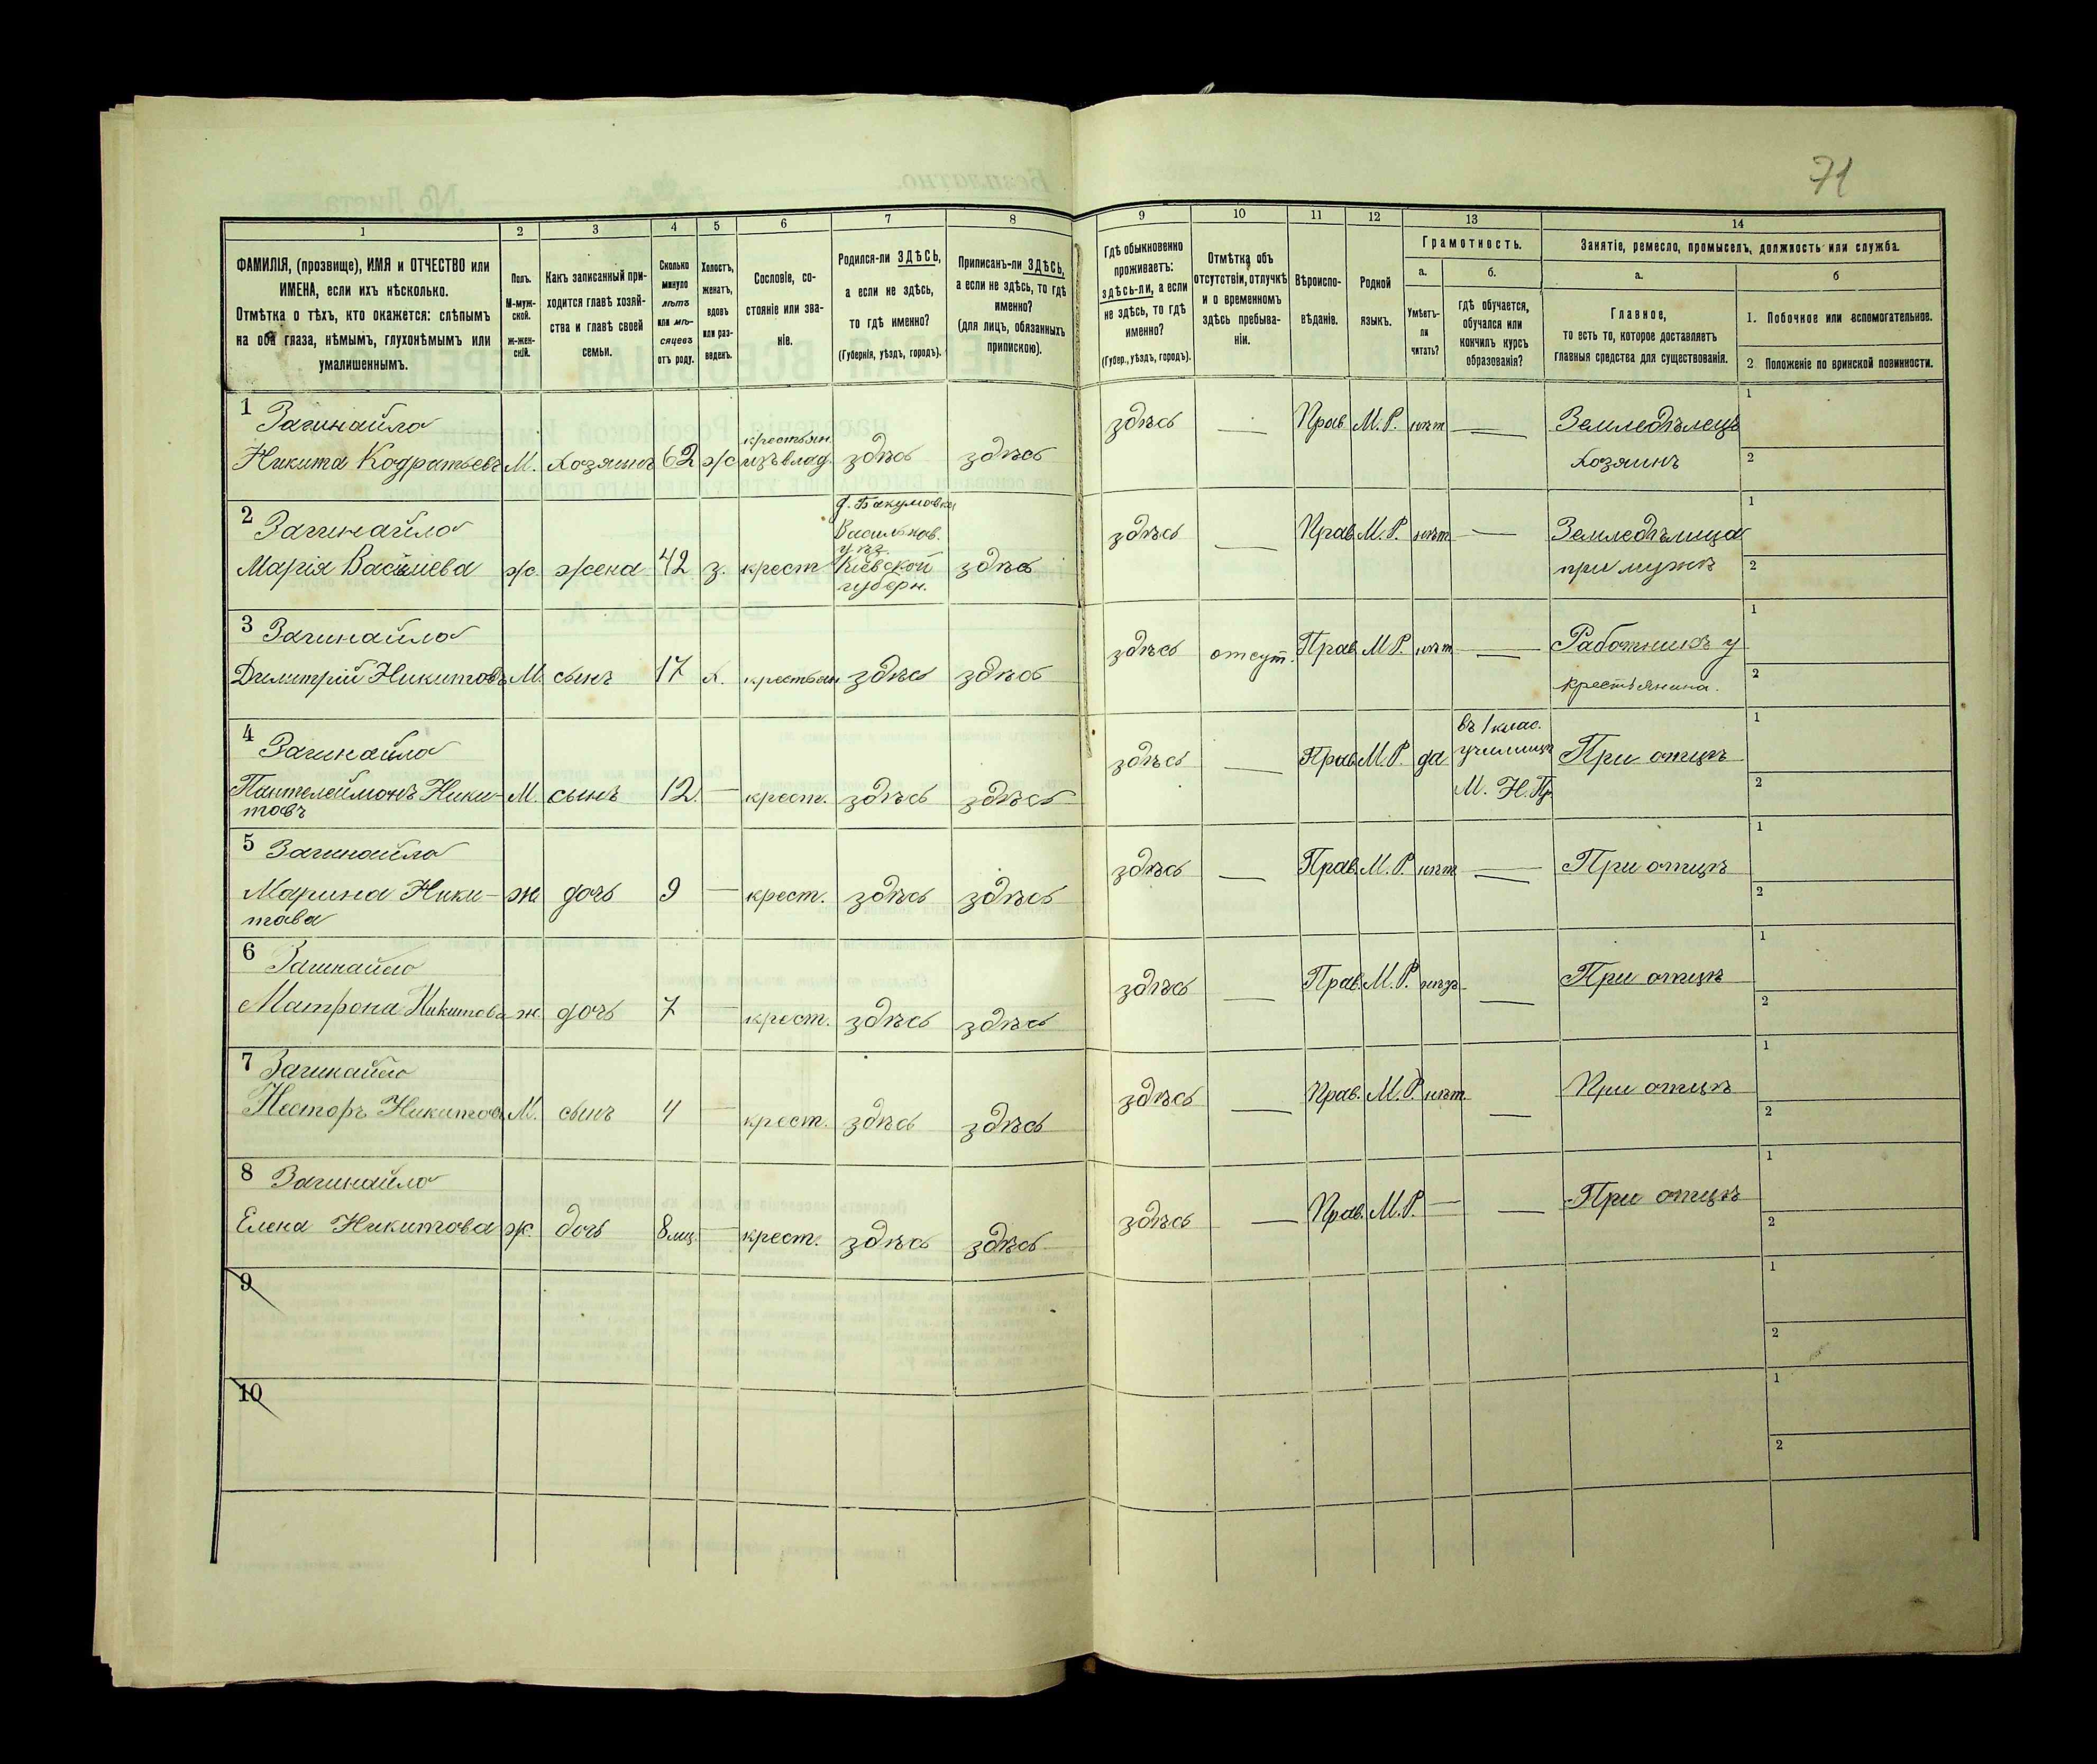 71
1 2 3 4 5 6 7 8 9 10 11 12 13 14
ФАМИЛІЯ, (прозвище), ИМЯ и ОТЧЕСТВО или
ИМЕНА, если ихъ нѣсколько.
Отмѣтка о тѣхъ, кто окажется: слѣпымъ
на оба глаза, нѣмымъ, глухонѣмымъ или
умалишеннымъ.
Полъ.
М-муж-
ской.
Ж-жен-
скій.
Какъ записанный при-
ходится главѣ хозяй-
ства и главѣ своей
семьи.
Сколько
минуло
лѣтъ
или мѣ-
сяцевъ
отъ роду.
Холостъ,
женатъ,
вдовъ
или раз-
веденъ.
Сословіе, со-
стояніе или зва-
ніе.
Родился-ли ЗДѢСЬ,
а если не здѣсь,
то гдѣ именно?
(Губернія, уѣздъ, городъ).
Приписанъ-ли ЗДѢСЬ,
а если не здѣсь, то гдѣ
именно?
(для лицъ, обязанныхъ
припискою).
Гдѣ обыкновенно
проживаетъ:
здѣсь-ли, а если
не здѣсь, то гдѣ
именно?
(Губер., уѣздъ, городъ).
Отмѣтка объ
отсутствіи, отлучкѣ
и о временномъ
здѣсь пребыва-
ніи.
Вѣроиспо-
вѣданіе.
Родной
языкъ.
Грамотность.
а.
Умѣетъ-
ли
читать?
б.
Гдѣ обучается,
обучался или
кончилъ курсъ
образованія?
Занятіе, ремесло, промыселъ, должность или служба.
а.
Главное,
то есть то, которое доставляетъ
главныя средства для существованія.
б
1. Побочное или вспомогательное.
2 Положеніе по воинской повинности.
1 Загинайло
Никита Кодратьевъ М. хозяинъ 62 ж
крестьян.
изъ влад. здѣсь здѣсь
здѣсь — Прав. М.Р. нѣтъ — Земледѣлецъ
хозяинъ
1
2
2 Загинайло
Марія Васильева ж. жена 42 з. крест
д. Бакумовка
Васильков.
уѣз.
Кіевской
губерн.
здѣсь
здѣсь — Прав. М.Р. нѣтъ — Земледѣлица
при мужѣ
1
2
3 Загинайло
Димитрій Никитовъ М. сынъ 17 х. крестьян здѣсь здѣсь
здѣсь отсут. Прав. М.Р. нѣтъ — Работникъ у
крестьянина.
1
2
4 Загинайло
Пантелеймонъ Ники-
товъ
М. сынъ 12. — крест. здѣсь здѣсь
здѣсь — Прав. М.Р. да
въ 1 клас.
училищѣ
М. Н. Пр.
При отцѣ
1
2
5 Загинайло
Марина Ники-
това
ж дочь 9 — крест. здѣсь здѣсь
здѣсь — Прав. М.Р. нѣтъ — При отцѣ
1
2
6 Загинайло
Матрона Никитова ж. дочь 7 — крест. здѣсь здѣсь
здѣсь — Прав. М.Р. нѣтъ — При отцѣ
1
2
7 Загинайло
Несторъ Никитовъ М. сынъ 4 — крест. здѣсь здѣсь
здѣсь — Прав. М.Р. нѣтъ — При отцѣ
1
2
8 Загинайло
Елена Никитова ж. дочь 8 мц. — крест. здѣсь здѣсь
здѣсь — Прав. М.Р. — — При отцѣ
1
2
9
1
2
10
1
2